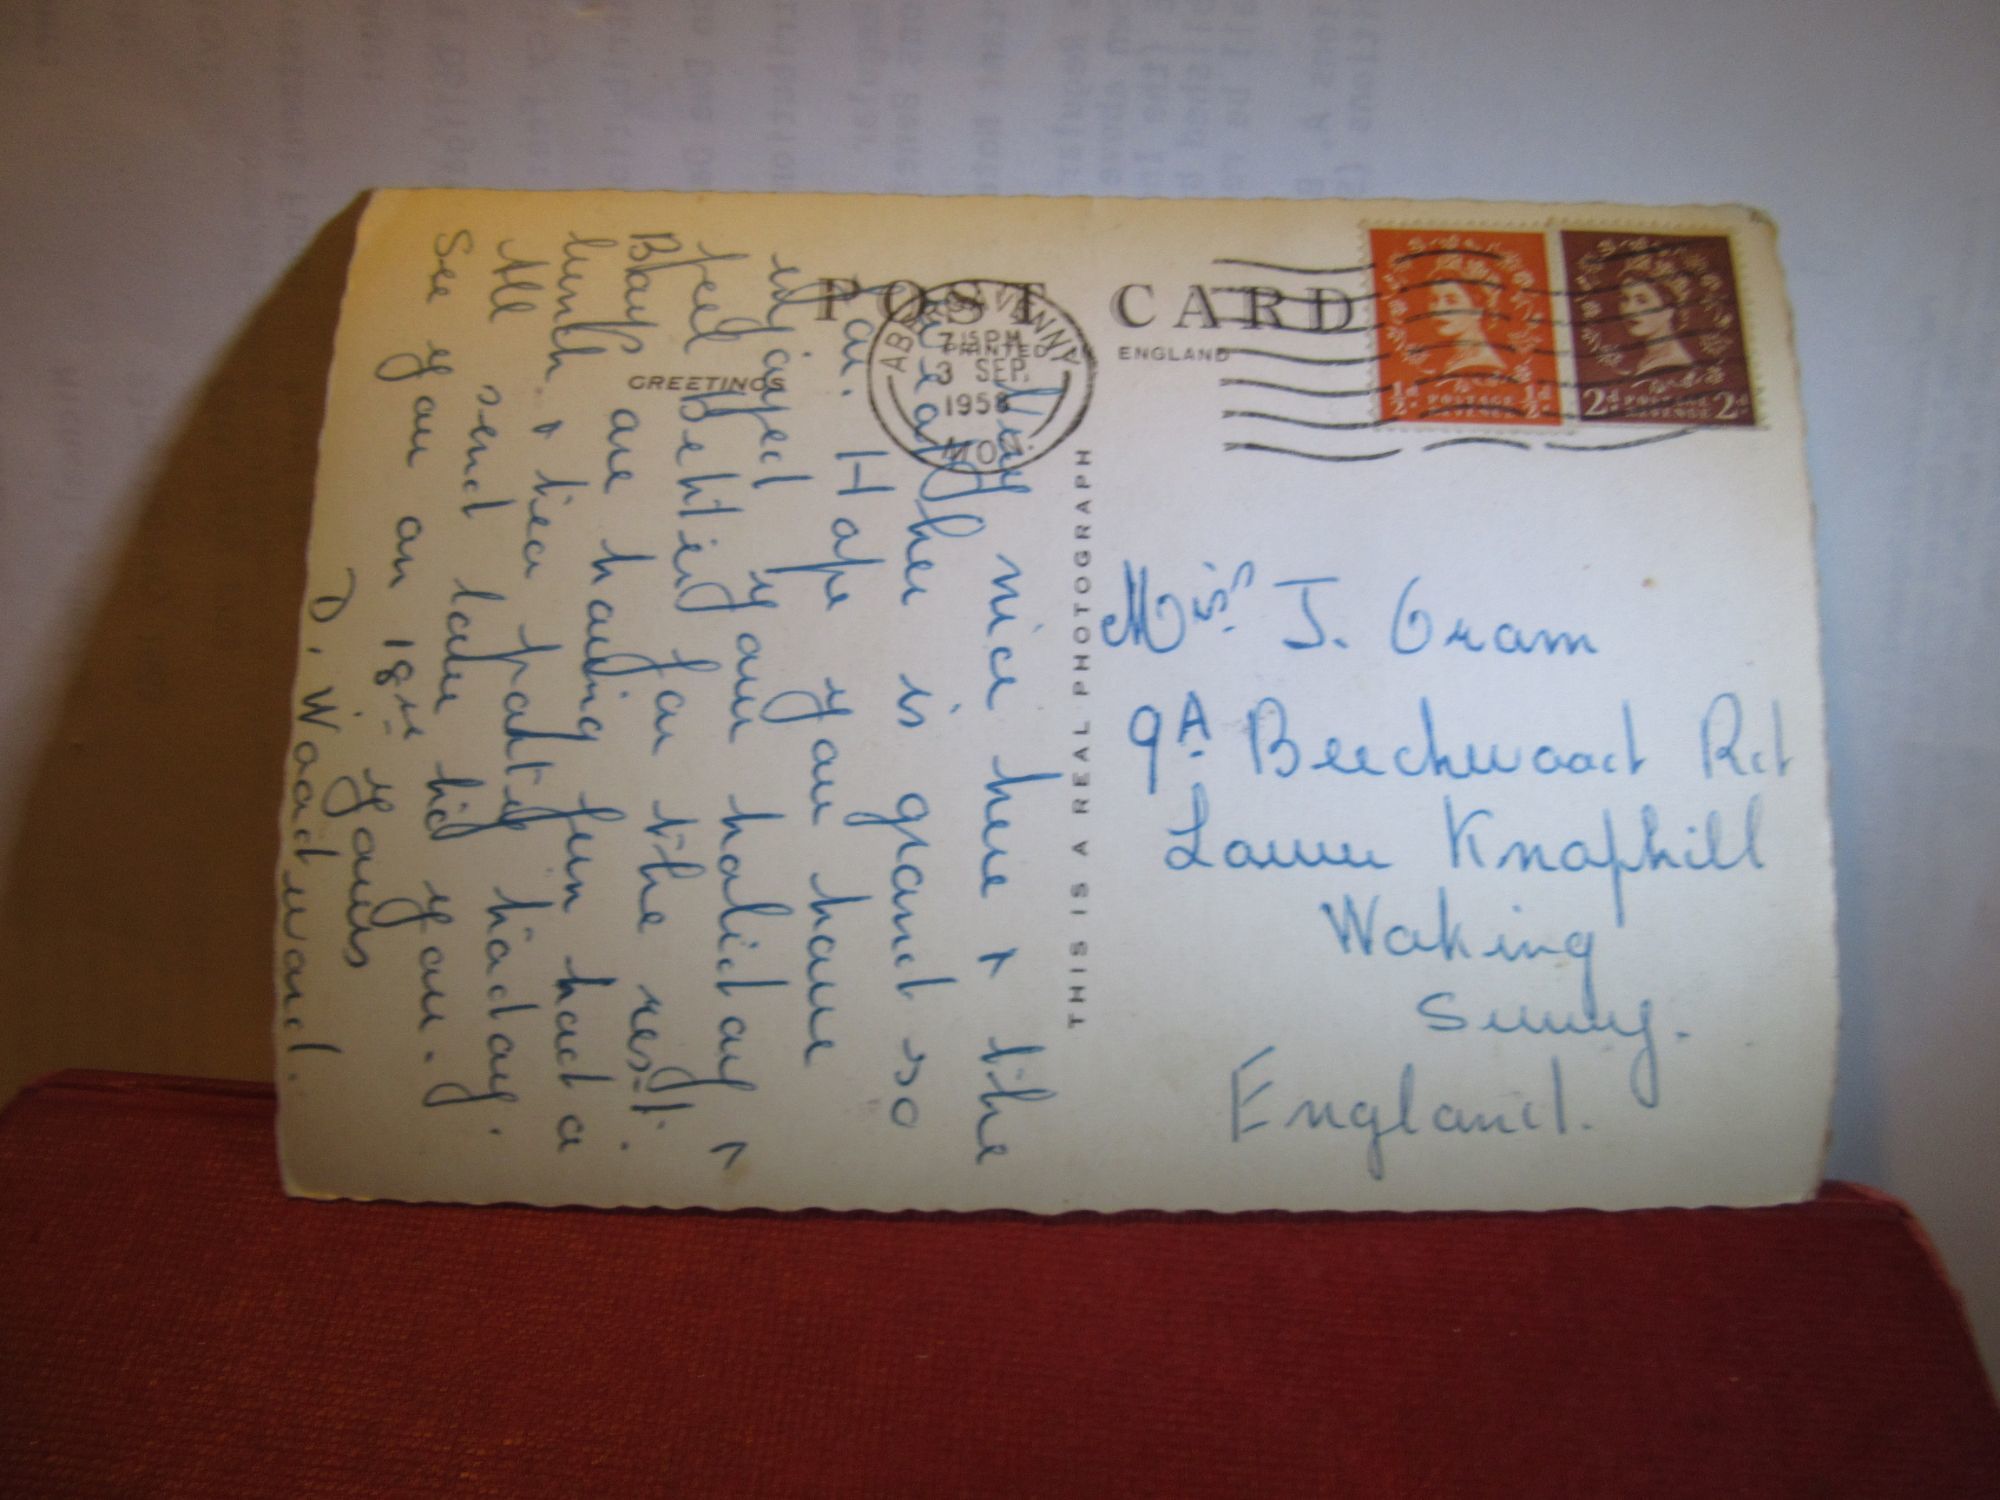 POST CARD
PRINTED IN ENGLAND
GREETINGS
ABERGAVENNY
7.15 PM
3 SEP.
1958
MON.
½d POSTAGE REVENUE ½d
2d POSTAGE REVENUE 2d
THIS IS A REAL PHOTOGRAPH
Very nice here & the
weather is grand so
far. Hope you have
enjoyed your holiday &
feel Better for the rest.
Boys are having fun had a
lunch & tea party today.
All send love hid you.
See you on 18th yours
D. Woodward.
Miss J. Oram
9A. Beechwood Rd
Lower Knaphill
Woking
Surrey.
England.